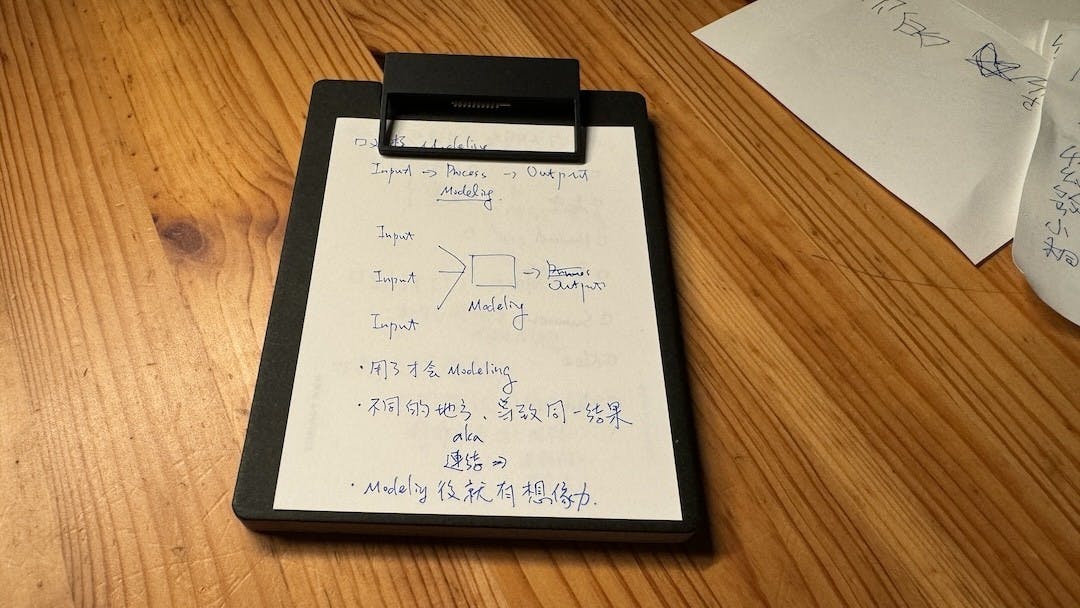 Modeling
Input → Process → Output
Modeling
Input
Input → Output
Modeling
Input
・用了才会 Modeling
・不同的地方、导致同一结果
aka
連結 ⇒
・Modeling 後就有想像力.
的
小